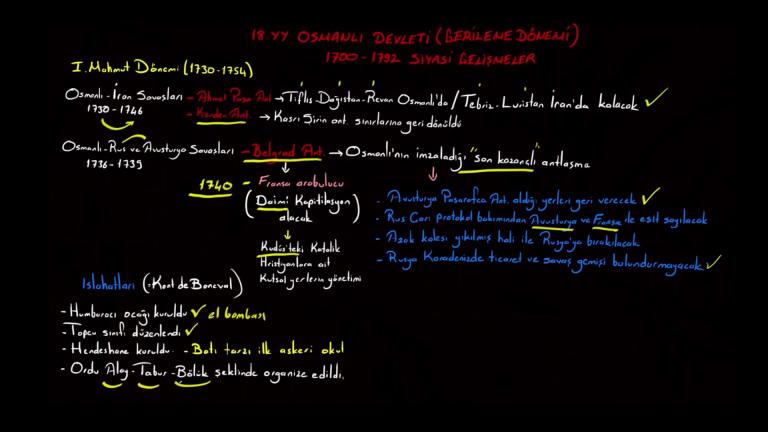 18 YY OSMANLI DEVLETİ (GERİLEME DÖNEMİ)
1700 - 1792 SİYASİ GELİŞMELER
I. Mahmut Dönemi (1730-1754)
Osmanlı - İran Savaşları - Ahmet Paşa Ant → Tiflis - Dağıstan - Revan Osmanlı'da / Tebriz - Luristan İran'da kalacak ✓
1730 - 1746 - Kerden Ant. → Kasrı Şirin ant. sınırlarına geri dönüldü
Osmanlı - Rus ve Avusturya Savaşları - Belgrad Ant → Osmanlı'nın imzaladığı "son kazançlı" antlaşma
1736 - 1739
1740 - Fransa arabulucu
(Daimi Kapitilasyon)
alacak
Kudüs'teki Katolik
Hristyanlara ait
Kutsal yerlerin yönetimi
- Avusturya Pasarofça Ant. aldığı yerleri geri verecek ✓
- Rus Çarı protokol bakımından Avusturya ve Fransa ile eşit sayılacak
- Azak kalesi yıkılmış hali ile Rusya'ya bırakılacak
- Rusya Karadenizde ticaret ve savaş gemisi bulundurmayacak ✓
Islahatları (-Kont de Boneval)
- Humbaracı ocağı kuruldu ✓ el bombası
- Topçu sınıfı düzenlendi ✓
- Hendeshane kuruldu. - Batı tarzı ilk askeri okul
- Ordu Alay - Tabur - Bölük şeklinde organize edildi.